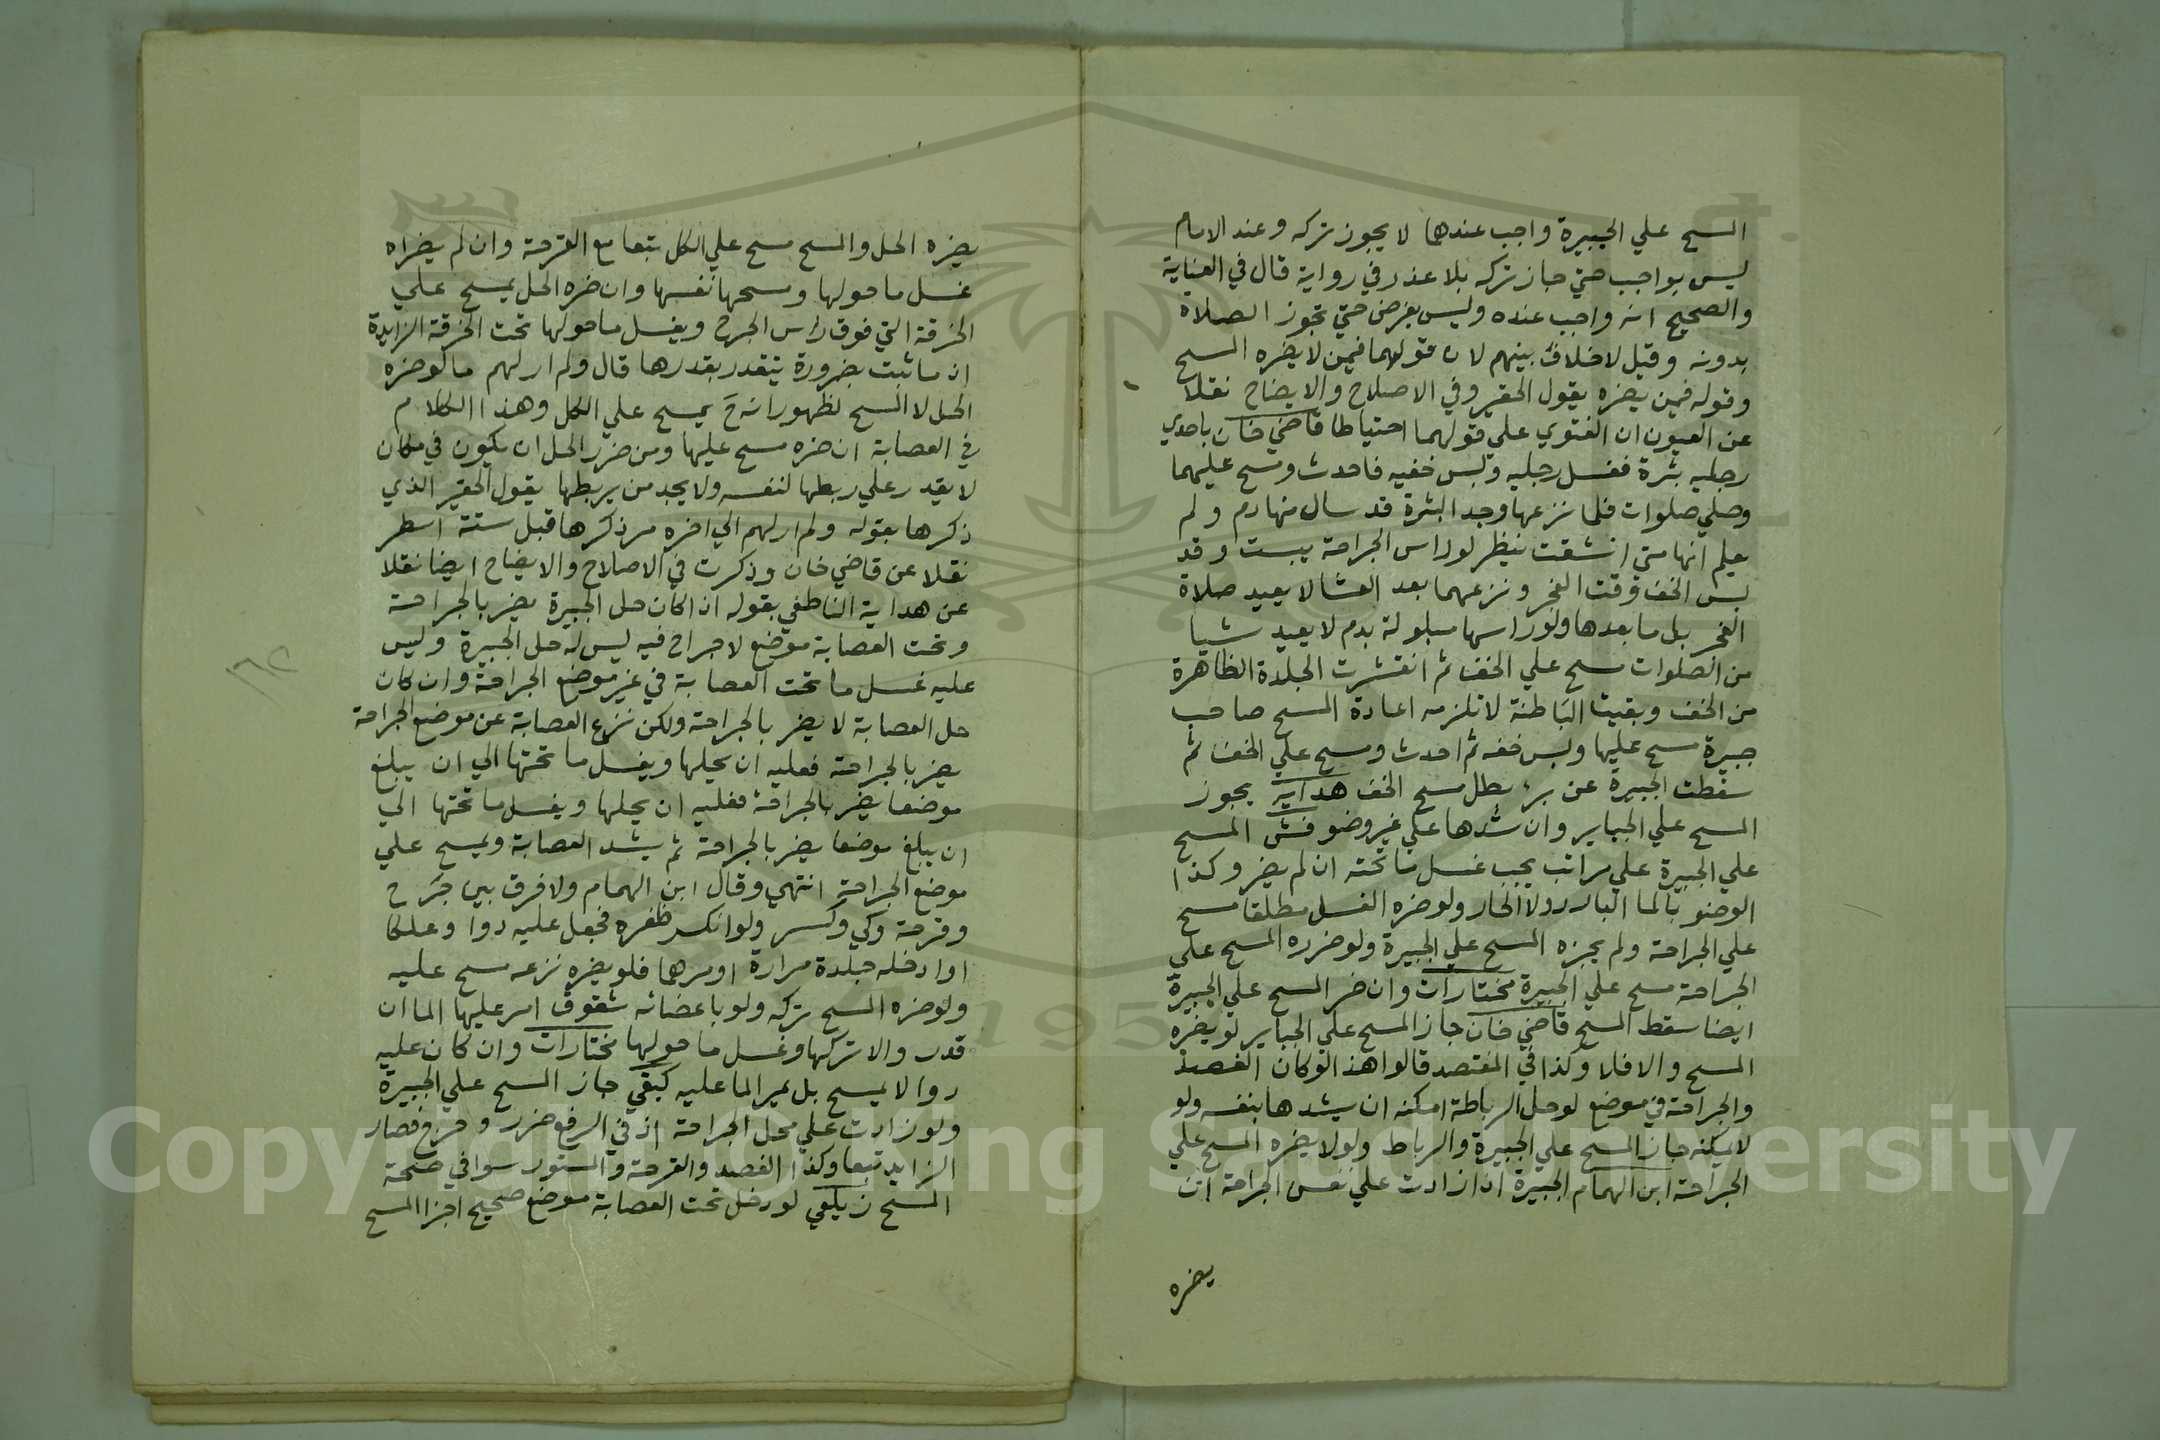 المسح علي الجبيرة واجب عندهما لا يجوز تركه وعند الامام
ليس بواجب حتي جاز تركه بلا عذر في رواية قال في العناية
والصحيح انه واجب عنده وليس بفرض حتي تجوز الصلاة
بدونه وقيل لا خلاف بينهم لان قولهما فيمن لا يضره المسح
وقوله فيمن يضره يقول الحقير وفي الاصلاح والايضاح نقلا
عن العيون ان الفتوي علي قولهما احتياطا قاضي خان باحدي
رجليه بثرة فغسل رجليه ولبس خفيه فاحدث ومسح عليهما
وصلي صلوات فلما نزعها وجد البثرة قد سال منها دم ولم
يعلم انها متي انشقت ينظر لو راس الجراحة يبست وقد
لبس الخف وقت الفجر ونزعهما بعد العشا لا يعيد صلاة
الفجر بل ما بعدها ولو راسها مبلولة بدم لا يعيد شيا
من الصلوات مسح علي الخف ثم انقشرت الجلدة الظاهرة
من الخف وبقيت الباطنة لا تلزمه اعادة المسح صاحب
جبيرة مسح عليها ولبس خفه ثم احدث ومسح علي الخف ثم
سقطت الجبيرة عن برء بطل مسح الخف هداية يجوز
المسح علي الجباير وان شدها علي غير وضو فش المسح
علي الجبيرة علي مراتب يجب غسل ما تحته ان لم يضر وكذا
الوضو بالما البارد ولا الحار ولو ضره الغسل مطلقا مسح
علي الجراحة ولم يجزه المسح علي الجبيرة ولو ضرره المسح علي
الجراحة مسح علي الجبيرة مختارات وان ضر المسح علي الجبيرة
ايضا سقط المسح قاضي خان جاز المسح علي الجباير لو يضره
المسح والا فلا وكذا في المفتصد قالوا هذا لو كان الفصد
والجراحة في موضع لو حل الرباطة امكنه ان يشدها بنفسه ولو
لا يمكنه جاز المسح علي الجبيرة والرباط ولو لا يضره المسح علي
الجراحة ابن الهمام الجبيرة اذا زادت علي نفس الجراحة ان
يضره
يضره الحل والمسح مسح علي الكل تبعا مع القرحة وان لم يضراه
غسل ما حولها ومسحها نفسها وان ضره الحل يمسح علي
الخرقة التي فوق راس الجرح ويغسل ما حولها تحت الخرقة الزايدة
اذ ما ثبت بضرورة يتقدر بقدرها قال ولم ار لهم ما لو ضره
الحل لا المسح لظهور انه ح يمسح علي الكل وهذا الكلام
في العصابة ان ضره مسح عليها ومن ضرر الحل ان يكون في مكان
لا يقدر علي ربطها لنفسه ولا يجد من يربطها يقول الحقير الذي
ذكرها بقوله ولم ار لهم الي اخره مر ذكرها قبل ستة اسطر
نقلا عن قاضي خان وذكرت في الاصلاح والايضاح ايضا نقلا
عن هداية الناطفي بقوله اذا كان حل الجبيرة يضر بالجراحة
وتحت العصابة موضع لا جراح فيه ليس له حل الجبيرة وليس
عليه غسل ما تحت العصابة في غير موضع الجراحة وان كان
حل العصابة لا يضر بالجراحة ولكن نزع العصابة عن موضع الجراحة
يضر بالجراحة فعليه ان يحلها ويغسل ما تحتها الي ان يبلغ
موضعا يضر بالجراحة فعليه ان يحلها ويغسل ما تحتها الي
ان يبلغ موضعا يضر بالجراحة ثم يشد العصابة ويمسح علي
موضع الجراحة انتهي وقال ابن الهمام ولا فرق بين جرح
وقرحة وكي وكسر ولو انكسر ظفره فجعل عليه دوا وعلكا
او ادخله جلدة مرارة او مرهما فلو يضره نزعه مسح عليه
ولو ضره المسح تركه ولو باعضائه شقوق امر عليها الما ان
قدر والا تركها وغسل ما حولها مختارات وان كان عليه
دوا لا يمسح بل يمر الما عليه كيفي جاز المسح علي الجبيرة
ولو زادت علي محل الجراحة اذ في الرفع ضرر وحرج فصار
الزايد تبعا وكذا الفصد والقرحة والمستور سوا في صحة
المسح زيلعي لو دخل تحت العصابة موضع صحيح اجزا المسح
Copyright © King Saud University
195